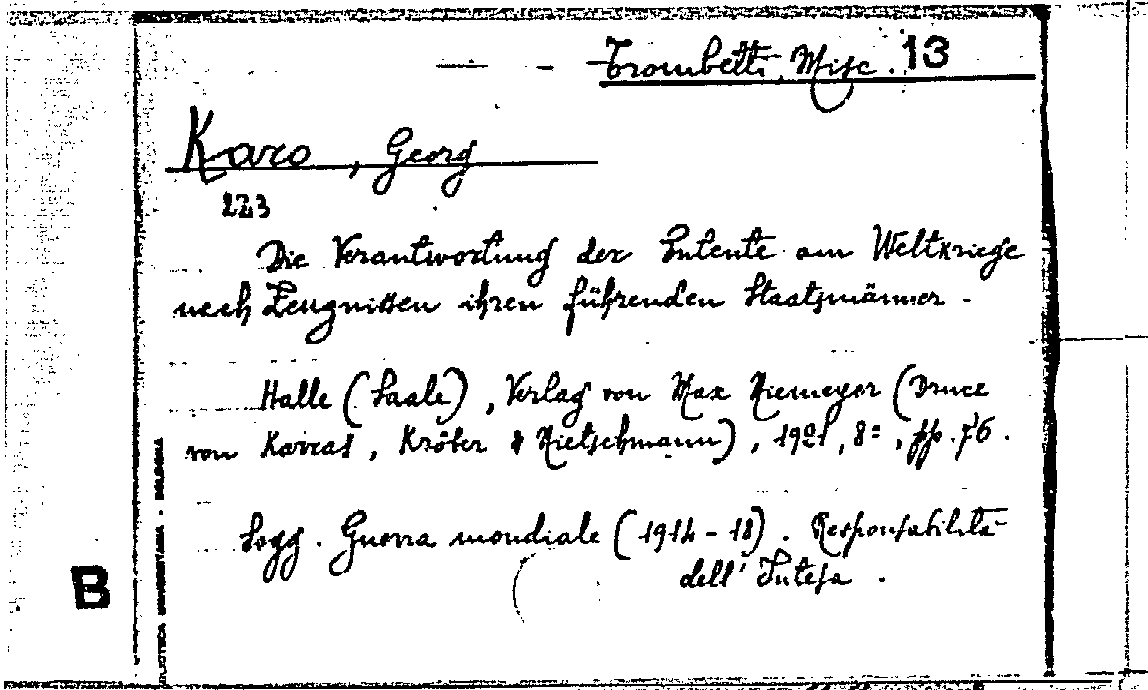 Trombetti, Misc. 13
Karo, Georg
223
Die Verantwortung der Entente am Weltkriege
nach Zeugnissen ihren führenden Staatsmänner -
Halle (Saale), Verlag von Max Niemeyer (Druce
von Karras, Kröber & Nietschmann), 1921, 8º, pp. 76.
Sogg. Guerra mondiale (1914-18). Responsabilità
dell'Intesa.
B
BIBLIOTECA UNIVERSITARIA - BOLOGNA